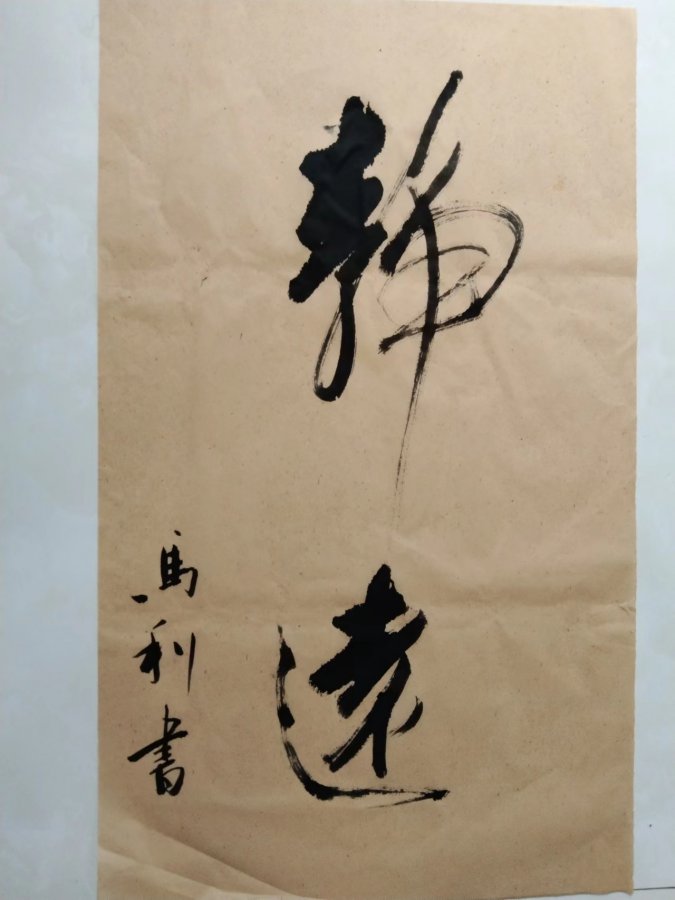 靜遠
馬利書